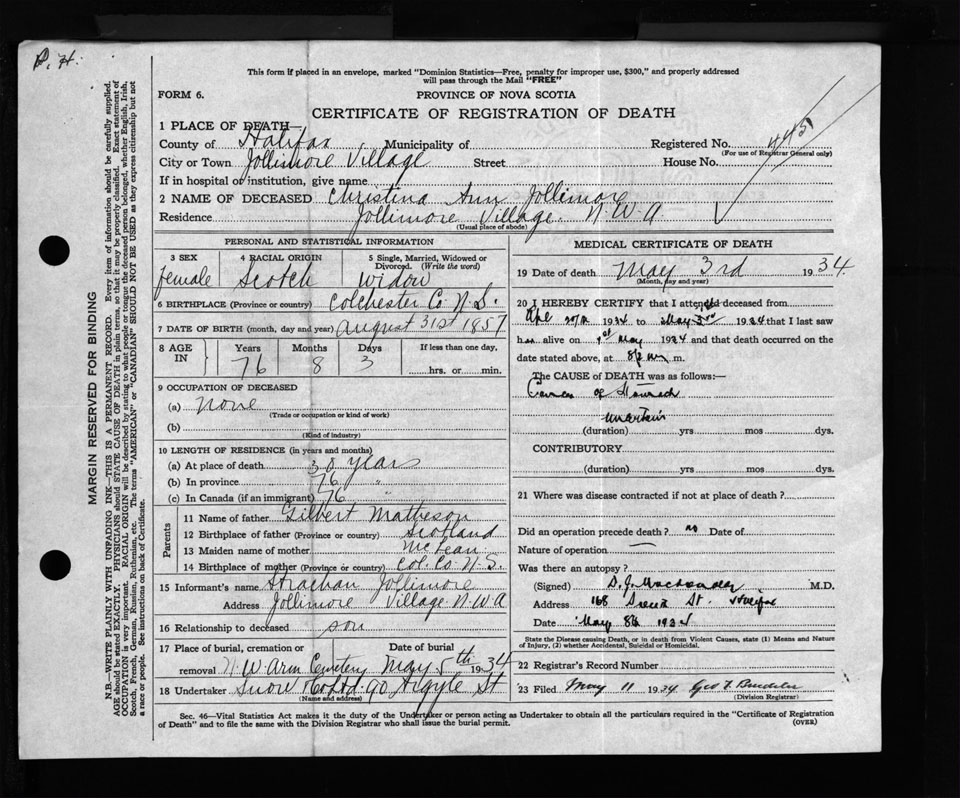 P. H.
This form if placed in an envelope, marked "Dominion Statistics—Free, penalty for improper use, $300," and properly addressed
will pass through the Mail "FREE"
FORM 6.
PROVINCE OF NOVA SCOTIA
CERTIFICATE OF REGISTRATION OF DEATH
1 PLACE OF DEATH—
County of Halifax Municipality of Registered No. 445
(For use of Registrar General only)
City or Town Jollimore Village Street House No.
If in hospital or institution, give name
2 NAME OF DECEASED Christina Ann Jollimore
Residence Jollimore Village. N.W.A.
(Usual place of abode)
PERSONAL AND STATISTICAL INFORMATION
3 SEX female
4 RACIAL ORIGIN Scotch
5 Single, Married, Widowed or Divorced. (Write the word) Widow
6 BIRTHPLACE (Province or country) Colchester Co N.S.
7 DATE OF BIRTH (month, day and year) August 31st 1857
8 AGE IN Years 76 Months 8 Days 3 If less than one day, hrs. or min.
9 OCCUPATION OF DECEASED
(a) None
(Trade or occupation or kind of work)
(b)
(Kind of industry)
10 LENGTH OF RESIDENCE (in years and months)
(a) At place of death 30 years
(b) In province 76 "
(c) In Canada (if an immigrant) 76 "
Parents
11 Name of father Gilbert Matheson
12 Birthplace of father (Province or country) Scotland
13 Maiden name of mother McLean
14 Birthplace of mother (Province or country) Col. Co. N.S.
15 Informant's name Strachan Jollimore
Address Jollimore Village N.W.A
16 Relationship to deceased son
17 Place of burial, cremation or removal N.W. Arm Cemetery Date of burial May 5th 1934
18 Undertaker Snow & Co Ltd 90 Argyle St
(Name and address)
MEDICAL CERTIFICATE OF DEATH
19 Date of death May 3rd 1934
(Month, day and year)
20 I HEREBY CERTIFY that I attended deceased from
1934 to May 3rd 1934 that I last saw
h alive on 1st May 1934 and that death occurred on the
date stated above, at m.
The CAUSE of DEATH was as follows:—
Cancer of Stomach
(duration) yrs mos dys.
CONTRIBUTORY
(duration) yrs mos dys.
21 Where was disease contracted if not at place of death?
Did an operation precede death? no Date of
Nature of operation —
Was there an autopsy?
(Signed) D. J. M.D.
Address 168 St. Halifax
Date May 8th 1934
State the Disease causing Death, or in death from Violent Causes, state (1) Means and Nature
of Injury, (2) whether Accidental, Suicidal or Homicidal.
22 Registrar's Record Number
23 Filed May 11 1934 Geo
(Division Registrar)
Sec. 46—Vital Statistics Act makes it the duty of the Undertaker or person acting as Undertaker to obtain all the particulars required in the "Certificate of Registration
of Death" and to file the same with the Division Registrar who shall issue the burial permit.
(OVER)
MARGIN RESERVED FOR BINDING
N.B.—WRITE PLAINLY WITH UNFADING INK—THIS IS A PERMANENT RECORD. Every item of information should be carefully supplied.
AGE should be stated EXACTLY. PHYSICIANS should STATE CAUSE OF DEATH in plain terms, so that it may be properly classified. Exact statement of
OCCUPATION is very important. RACIAL ORIGIN will be described by stating to what people or tongue the deceased person belonged, whether English, Irish,
Scotch, French, German, Russian, Ruthenian, etc. The terms "AMERICAN" or "CANADIAN" SHOULD NOT BE USED as they express citizenship but not
a race or people. See instructions on back of Certificate.